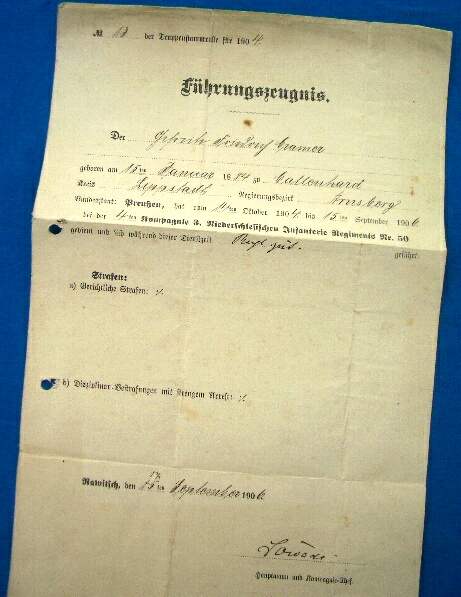 № 13 der Truppenstammrolle für 1904.
Führungszeugnis.
Der Gefreite Cramer
geboren am 15ten Januar 1884 zu Callenhard
Kreis Lippstadt Regierungsbezirk Arnsberg
Bundesstaat: Preußen, hat vom ten Oktober 1904 bis 15ten September 1906
bei der 4ten Kompagnie 3. Niederschlesischen Infanterie Regiments Nr. 50
gedient und sich während dieser Dienstzeit Recht gut. geführt.
Strafen:
a) Gerichtliche Strafen: ./.
b) Disziplinar-Bestrafungen mit strengem Arrest: ./.
Rawitsch, den 15ten September 1906.
Hauptmann und Kompagnie-Chef.